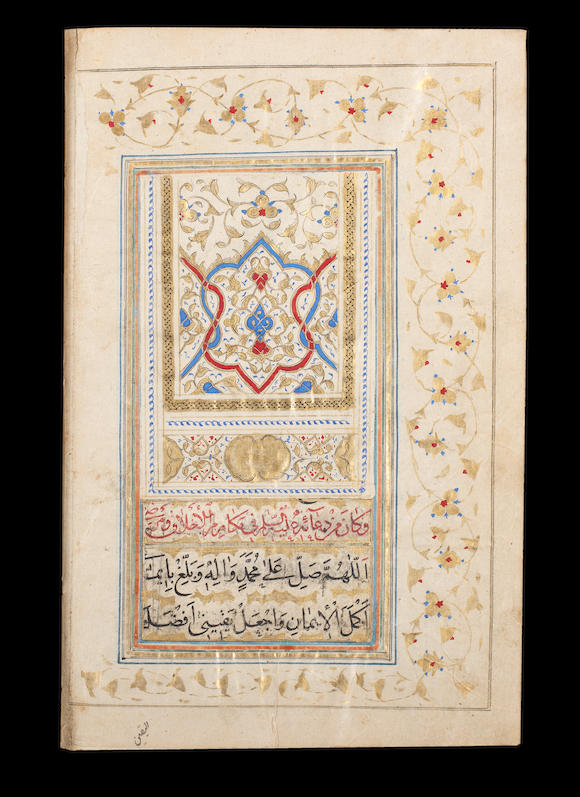 وكان من دعائه عليه السلم في مكارم الأخلاق ومرضي
اَللّهُمَّ صَلِّ عَلى مُحَمَّدٍ وَالِهِ وَبَلِّغْ بِايمانى
اَكْمَلَ الْايمانِ وَاجْعَلْ يَقينى اَفْضَلَ
اليقين